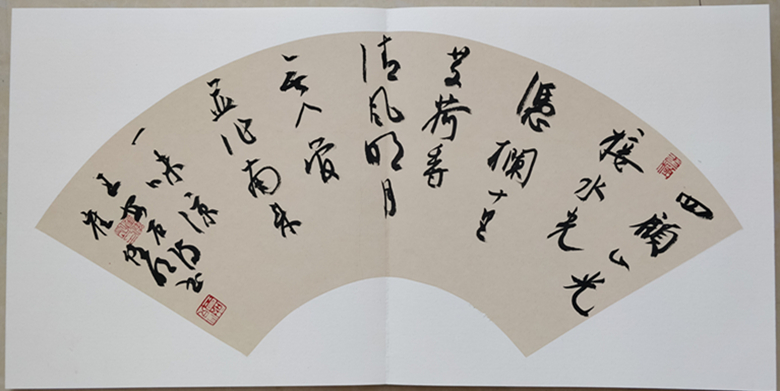 四顧山光
接水光
憑欄十里
芰荷香
清风明月
無人管
並作南楼
一味凉